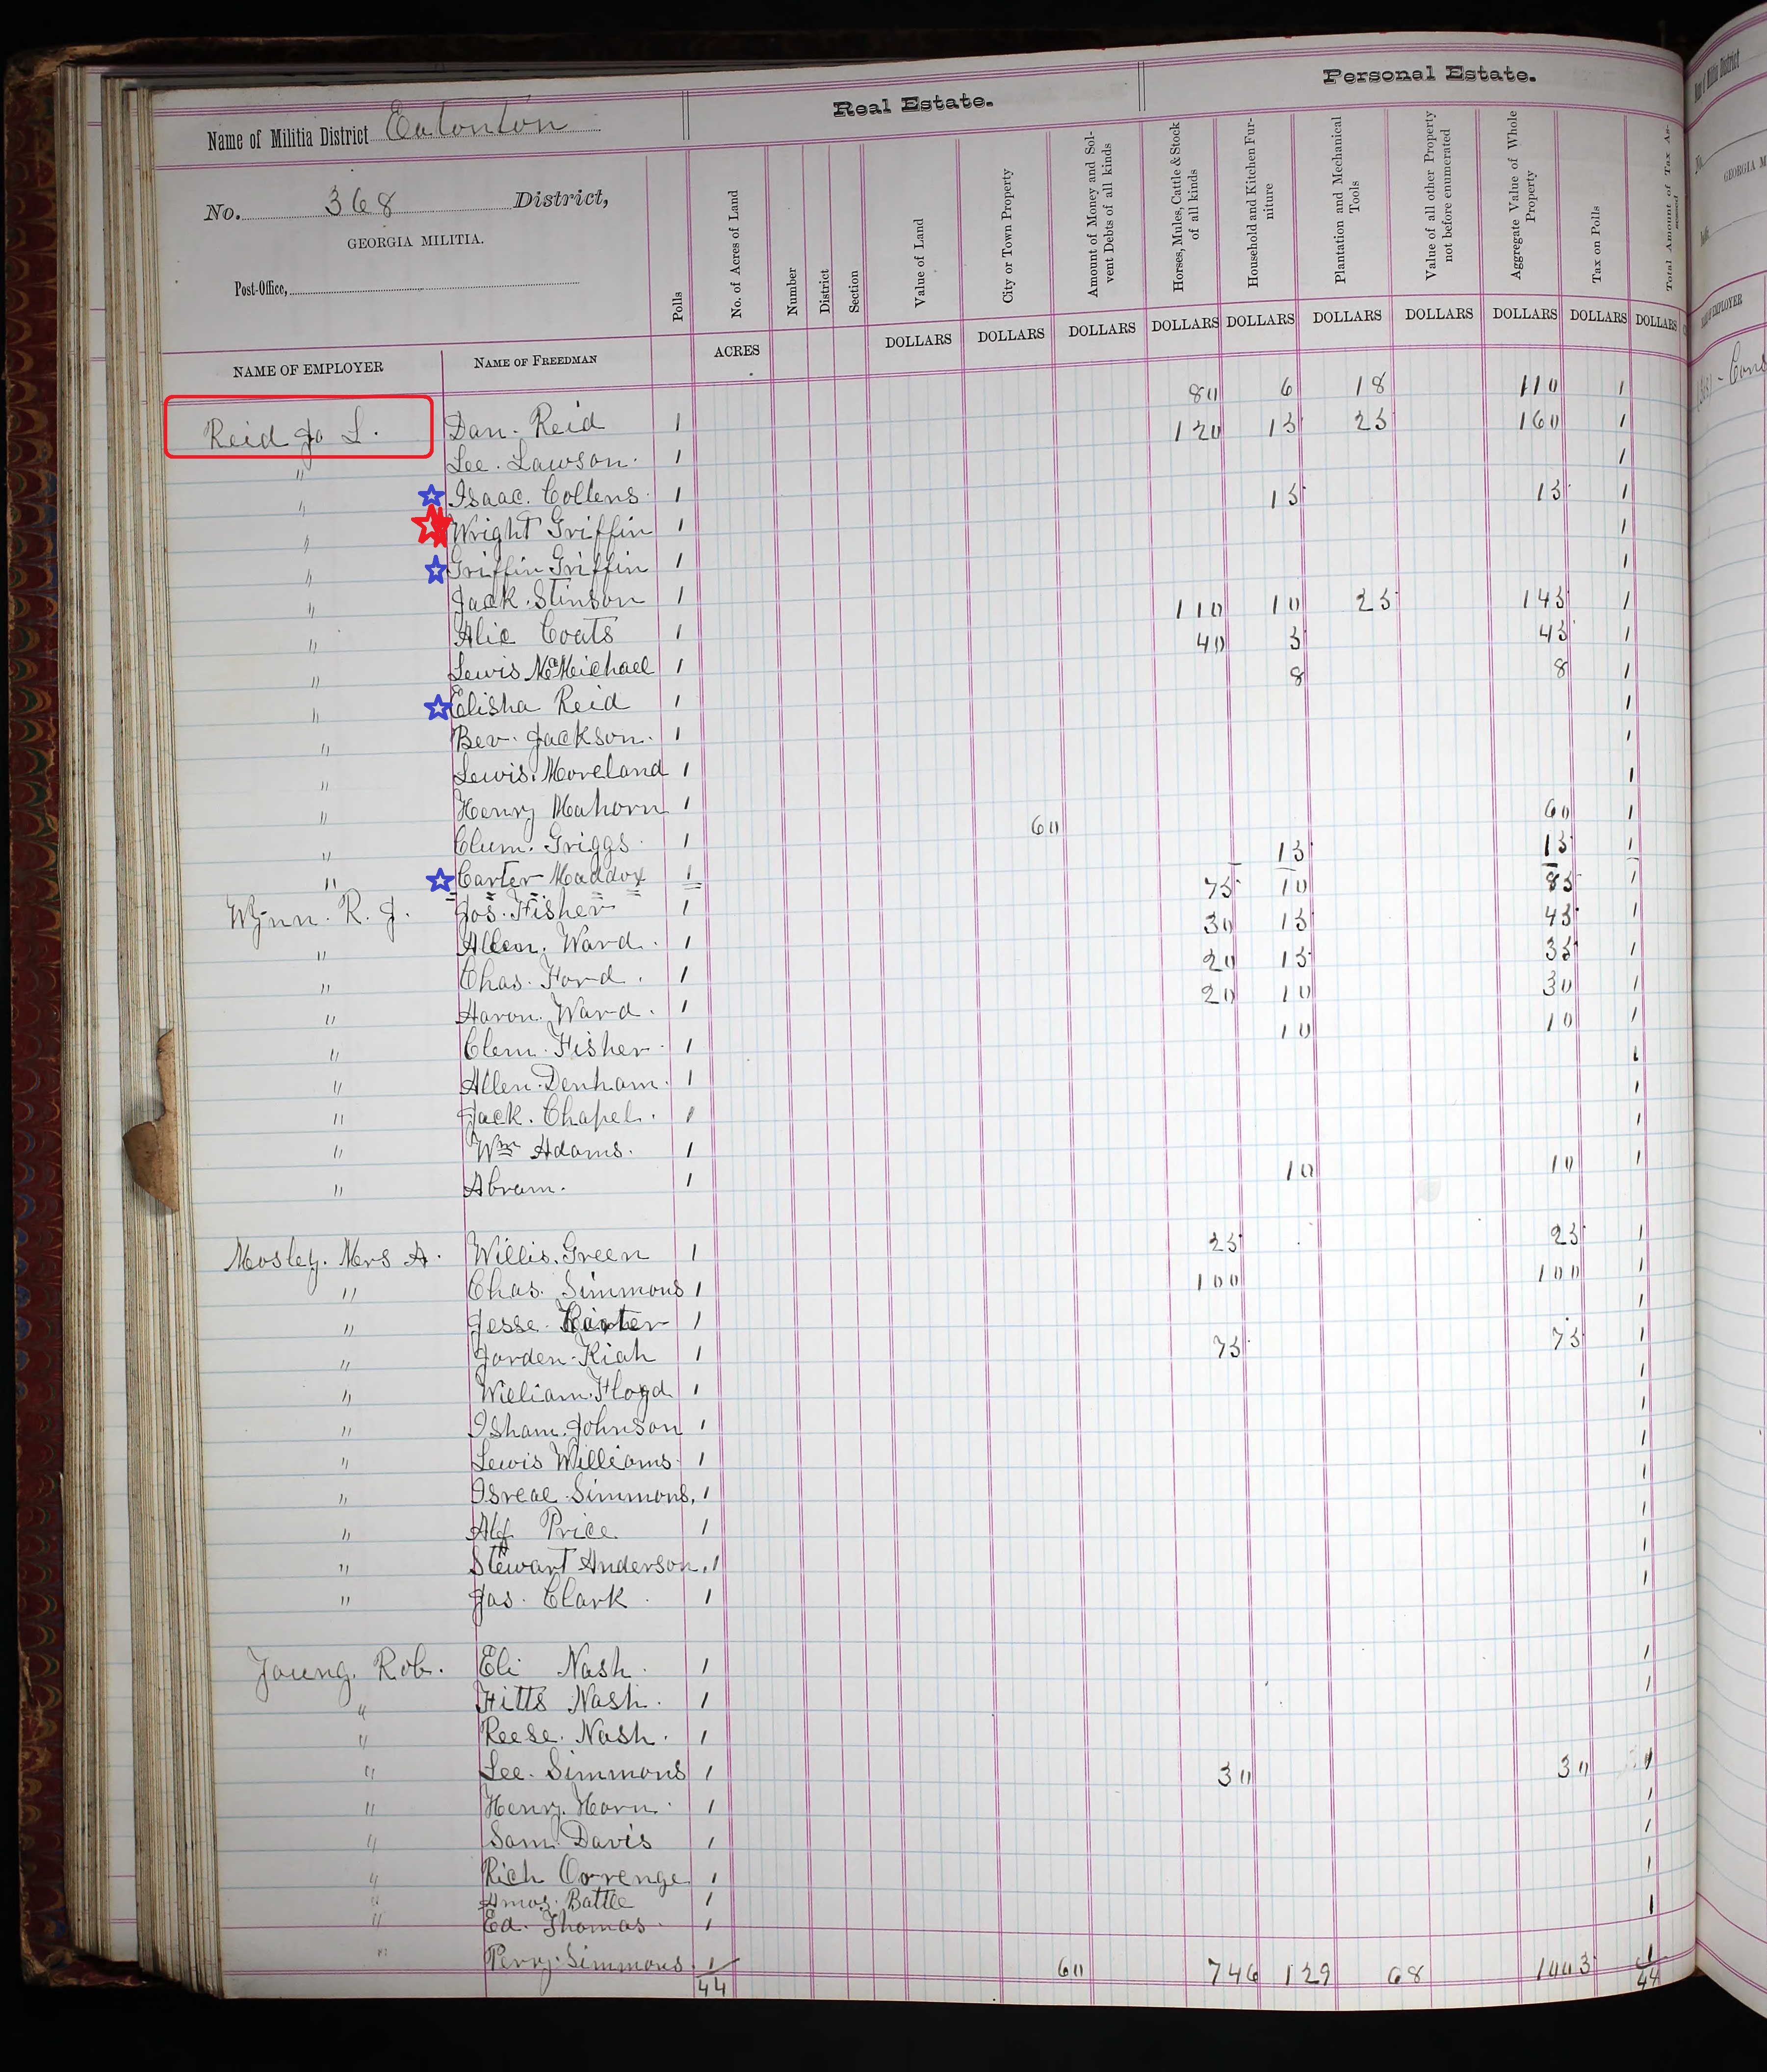 Real Estate.
Personal Estate.
Name of Militia District Eatonton
No. 368 District,
GEORGIA MILITIA.
Post-Office,
Polls
No. of Acres of Land
Number
District
Section
Value of Land
City or Town Property
Amount of Money and Solvent Debts of all kinds
Horses, Mules, Cattle & Stock of all kinds
Household and Kitchen Furniture
Plantation and Mechanical Tools
Value of all other Property not before enumerated
Aggregate Value of Whole Property
Tax on Polls
Total Amount of Tax Assessed
ACRES DOLLARS DOLLARS DOLLARS DOLLARS DOLLARS DOLLARS DOLLARS DOLLARS DOLLARS DOLLARS
NAME OF EMPLOYER NAME OF FREEDMAN
80 6 18 110 1
Reid Jo L. Dan. Reid 1 120 15 25 160 1
" Lee. Lawson. 1 1
" Isaac. Collens. 1 15 15 1
" Wright Griffin 1 1
" Griffin Griffin 1 1
" Jack. Stinson 1 110 10 25 145 1
" Alic Coats 1 40 5 45 1
" Lewis McMichael 1 8 8 1
" Elisha Reid 1 1
" Bev. Jackson. 1 1
" Lewis. Moreland 1 1
" Henry Mahorn 1 60 60 1
" Clum. Griggs. 1 15 15 1
" Carter Maddox 1 75 10 85 1
Wynn. R. J. Jos. Fisher 1 30 15 45 1
" Allen. Ward. 1 20 15 35 1
" Chas. Ford. 1 20 10 30 1
" Aaron. Ward. 1 10 10 1
" Clem. Fisher. 1 1
" Allen. Denham. 1 1
" Jack. Chapel. 1 1
" Wm Adams. 1 10 10 1
" Abram. 1
Mosley. Mrs A. Willis. Green 1 25 25 1
" Chas. Simmons 1 100 100 1
" Jesse. 1 1
" Jorden. Kiah 1 75 75 1
" William. Floyd 1 1
" Isham. Johnson 1 1
" Lewis Williams. 1 1
" Isreal. Simmons. 1 1
" Alf. Price 1 1
" Stewart Anderson. 1 1
" Jas. Clark. 1 1
Young. Rob. Eli Nash. 1 1
" Hitts Nash. 1 1
" Reese. Nash. 1
" Lee. Simmons 1 30 30 1
" Henry. Horn. 1 1
" Sam. Davis 1 1
" Rich 1 1
" Amos. Battle 1 1
" Ed. Thomas. 1
" Perry. Simmons. 1 60 746 129 68 1003 1
44 44